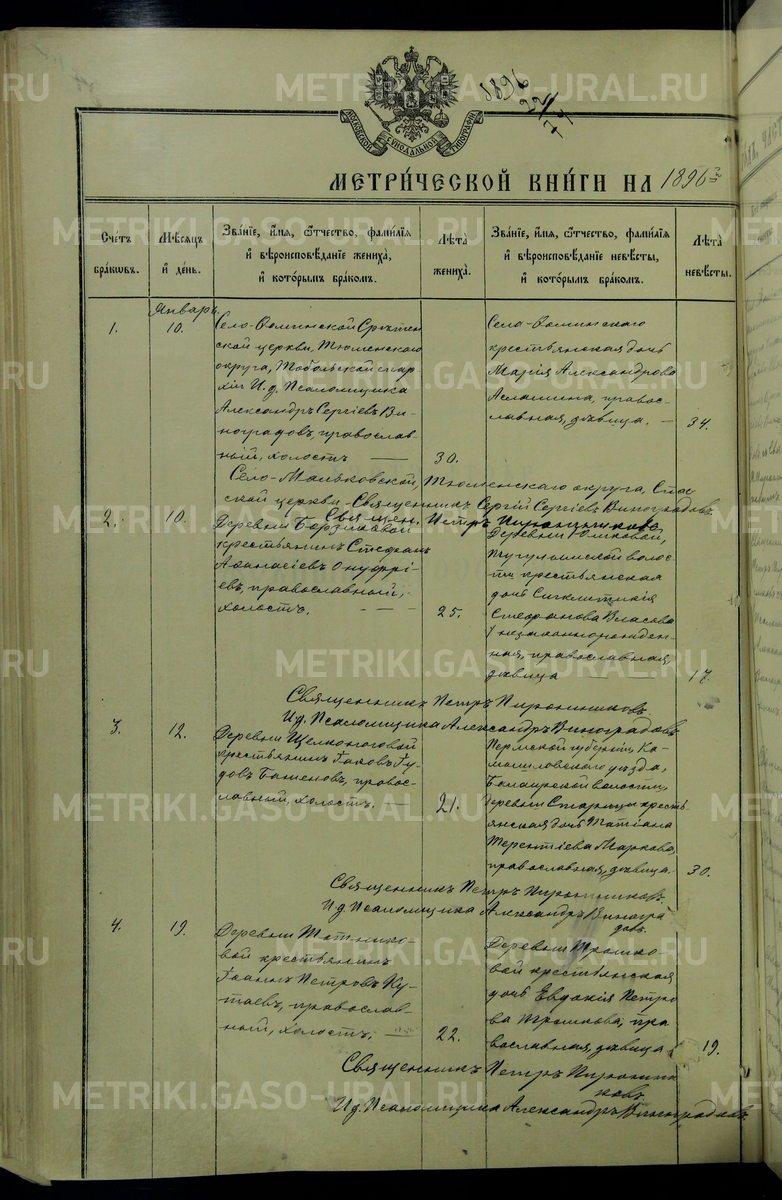 1896
МОСКОВСКОЙ СУНОДАЛЬНОЙ ТИПОГРАФІИ
МЕТРИ́ЧЕСКОЙ КНИ́ГИ НА 1896
Счетъ бракѡвъ.
Мѣсяцъ и день.
Зва́нїе, и́мя, ѻ҆́тчество, фами́лїя и вѣроисповѣ́данїе жениха̀, и кото́рымъ бра́комъ.
Лѣта̀ жениха̀.
Зва́нїе, и́мя, ѻ҆́тчество, фами́лїя и вѣроисповѣ́данїе невѣ́сты, и кото́рымъ бра́комъ.
Лѣта̀ невѣ́сты.
Январь.
1.
10.
Село-Фоминской Срѣтен
ской церкви, Тюменскаго
округа, Тобольской епар
хіи И. д. Псаломщика
Александръ Сергіевъ Ви-
ноградовъ, православ-
ный, холостъ
30.
Села-Фоминскаго
крестьянская дочь
Марія Александрова
Аслашина, правос-
лавная, дѣвица.
34.
Село-Мальковской, Тюменскаго округа, Спас
ской церкви Священникъ Сергій Сергіевъ Виноградовъ
Священ. Петръ Пиронниковъ
2.
10.
Деревни
крестьянинъ Стефанъ
Аѳанасіевъ Онуфрі-
евъ, православный,
холостъ.
25.
Деревни
Тугулымской волос-
ти крестьянская
дочь Сиклитикія
Стефанова Власова
/ незаконнорожден-
ная, православная,
дѣвица
17.
Священникъ Петръ Пиронниковъ.
И. д. Псаломщика Александръ Виноградовъ
3.
12.
Деревни Щелконоговой
крестьянинъ Іаковъ
Баженовъ, правос-
лавный, холостъ.
21.
Пермской губерніи, Ка-
мышловскаго уѣзда,
волости,
деревни крестья-
янская дочь Татіана
Терентіева Маркова,
православная, дѣвица.
30.
Священникъ Петръ Пиронниковъ.
И. д. Псаломщика Александръ Виногра
довъ.
4.
19.
Деревни
вой крестьянинъ
Іоаннъ Петровъ Ку-
таевъ, православ-
ный, холостъ.
22.
Деревни Трошко-
вой крестьянская
дочь Евдокія Петро
ва Трошкова, пра
вославная, дѣвица
19.
Священникъ Петръ Пиронни
ковъ
И. д. Псаломщика Александръ Виноградовъ.
METRIKI.GASO-URAL.RU